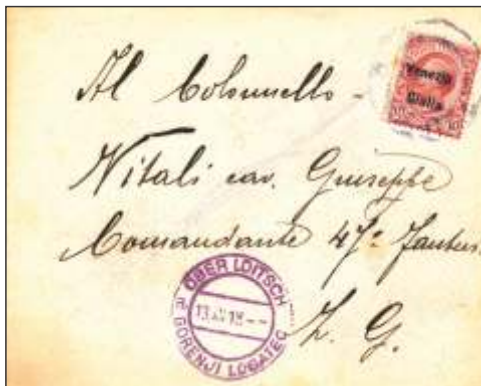 Venezia
Giulia
Al Colonnello
Vitali cav. Giuseppe
Comandante 47°
Z. G.
OBER LOITSCH
GORENJI LOGATEC